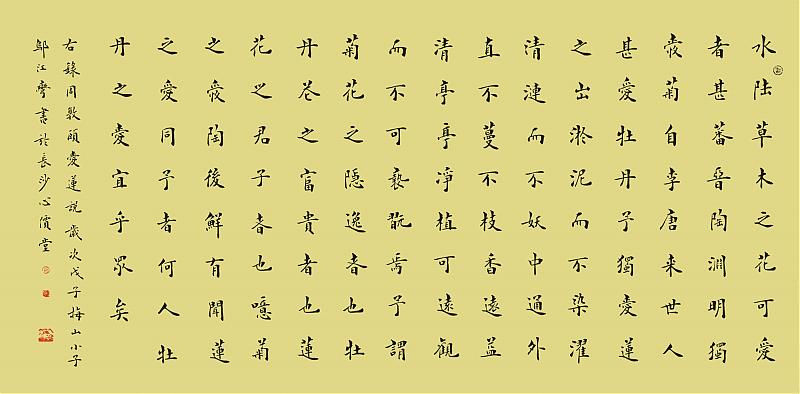 水陆草木之花可愛
者甚蕃晉陶淵明獨
愛菊自李唐来世人
甚愛牡丹予獨愛蓮
之出淤泥而不染濯
清漣而不妖中通外
直不蔓不枝香遠益
清亭亭淨植可遠觀
而不可褻翫焉予謂
菊花之隱逸者也牡
丹花之富貴者也蓮
花之君子者也噫菊
之愛陶後鮮有聞蓮
之愛同予者何人牡
丹之愛宜乎眾矣
右錄周敦頤愛蓮說歲次戊子梅山小子
鄒江書於長沙心堂